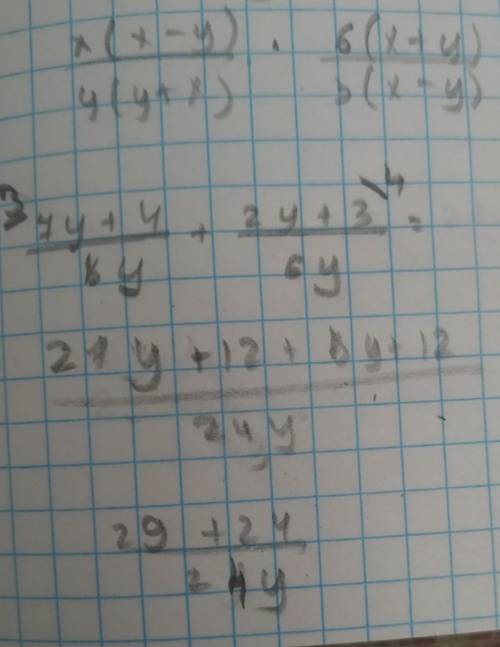 x(x-y)/y(y+x) · 6(x+y)/b(x-y)
3 (7y+4)/8y + (2y+3)/6y \4 =
(21y+12+8y+12)/24y
(29+24)/24y